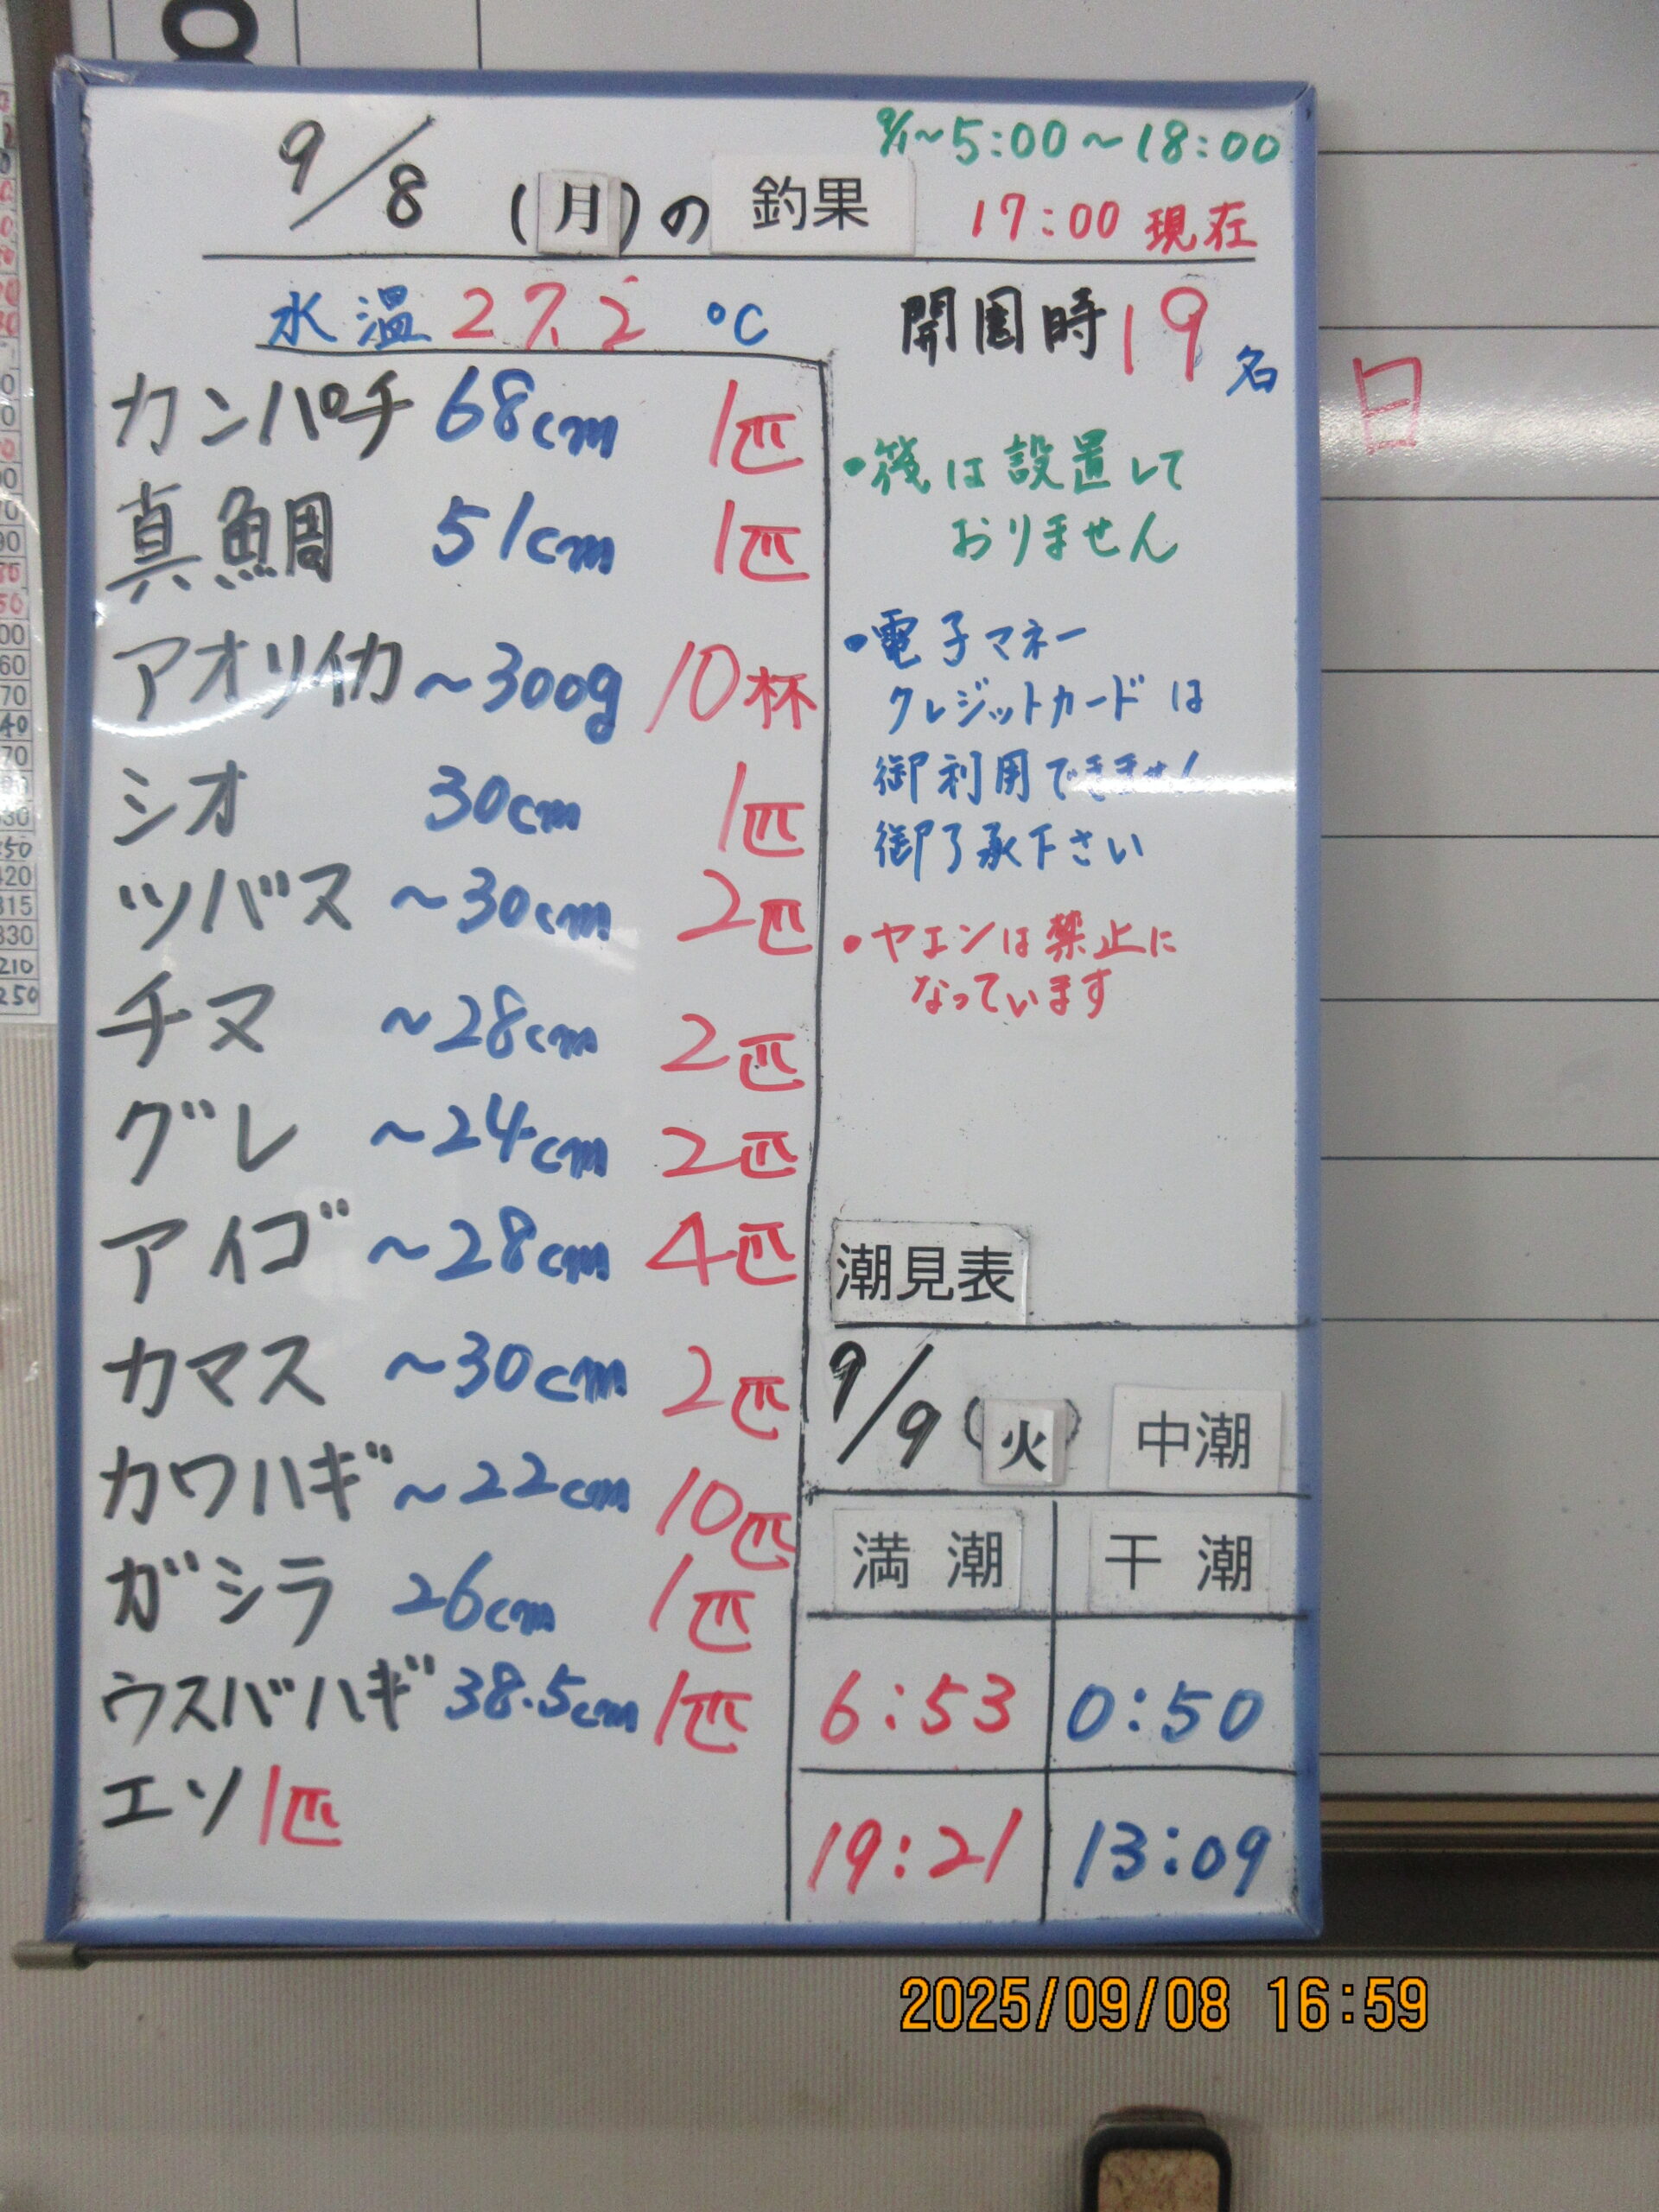 9/8 (月)の 釣果
9/1~5:00~18:00
17:00 現在
水温 27.2 ℃
開園時 19名
カンパチ 68cm 1匹
真鯛 51cm 1匹
アオリイカ ~300g 10杯
シオ 30cm 1匹
ツバス ~30cm 2匹
チヌ ~28cm 2匹
グレ ~24cm 2匹
アイゴ ~28cm 4匹
カマス ~30cm 2匹
カワハギ ~22cm 10匹
ガシラ 26cm 1匹
ウスバハギ 38.5cm 1匹
エソ 1匹
・筏は設置して
おりません
・電子マネー
クレジットカードは
御利用できません
御了承下さい
・ヤエンは禁止に
なっています
潮見表
9/9 (火) 中潮
満潮 干潮
6:53 0:50
19:21 13:09
日
2025/09/08 16:59